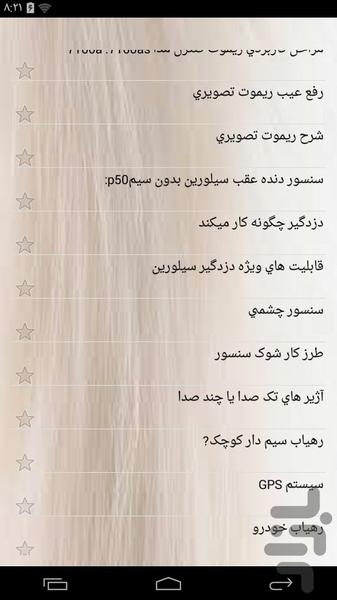 ۸:۲۱
مراحل کاربردي ريموت کنترل مدا 7100a .7100as
رفع عيب ريموت تصويري
شرح ريموت تصويري
سنسور دنده عقب سيلورين بدون سيمp50:
دزدگير چگونه کار ميکند
قابليت هاي ويژه دزدگير سيلورين
سنسور چشمي
طرز کار شوک سنسور
آژير هاي تک صدا يا چند صدا
رهياب سيم دار کوچک?
سيستم GPS
رهياب خودرو